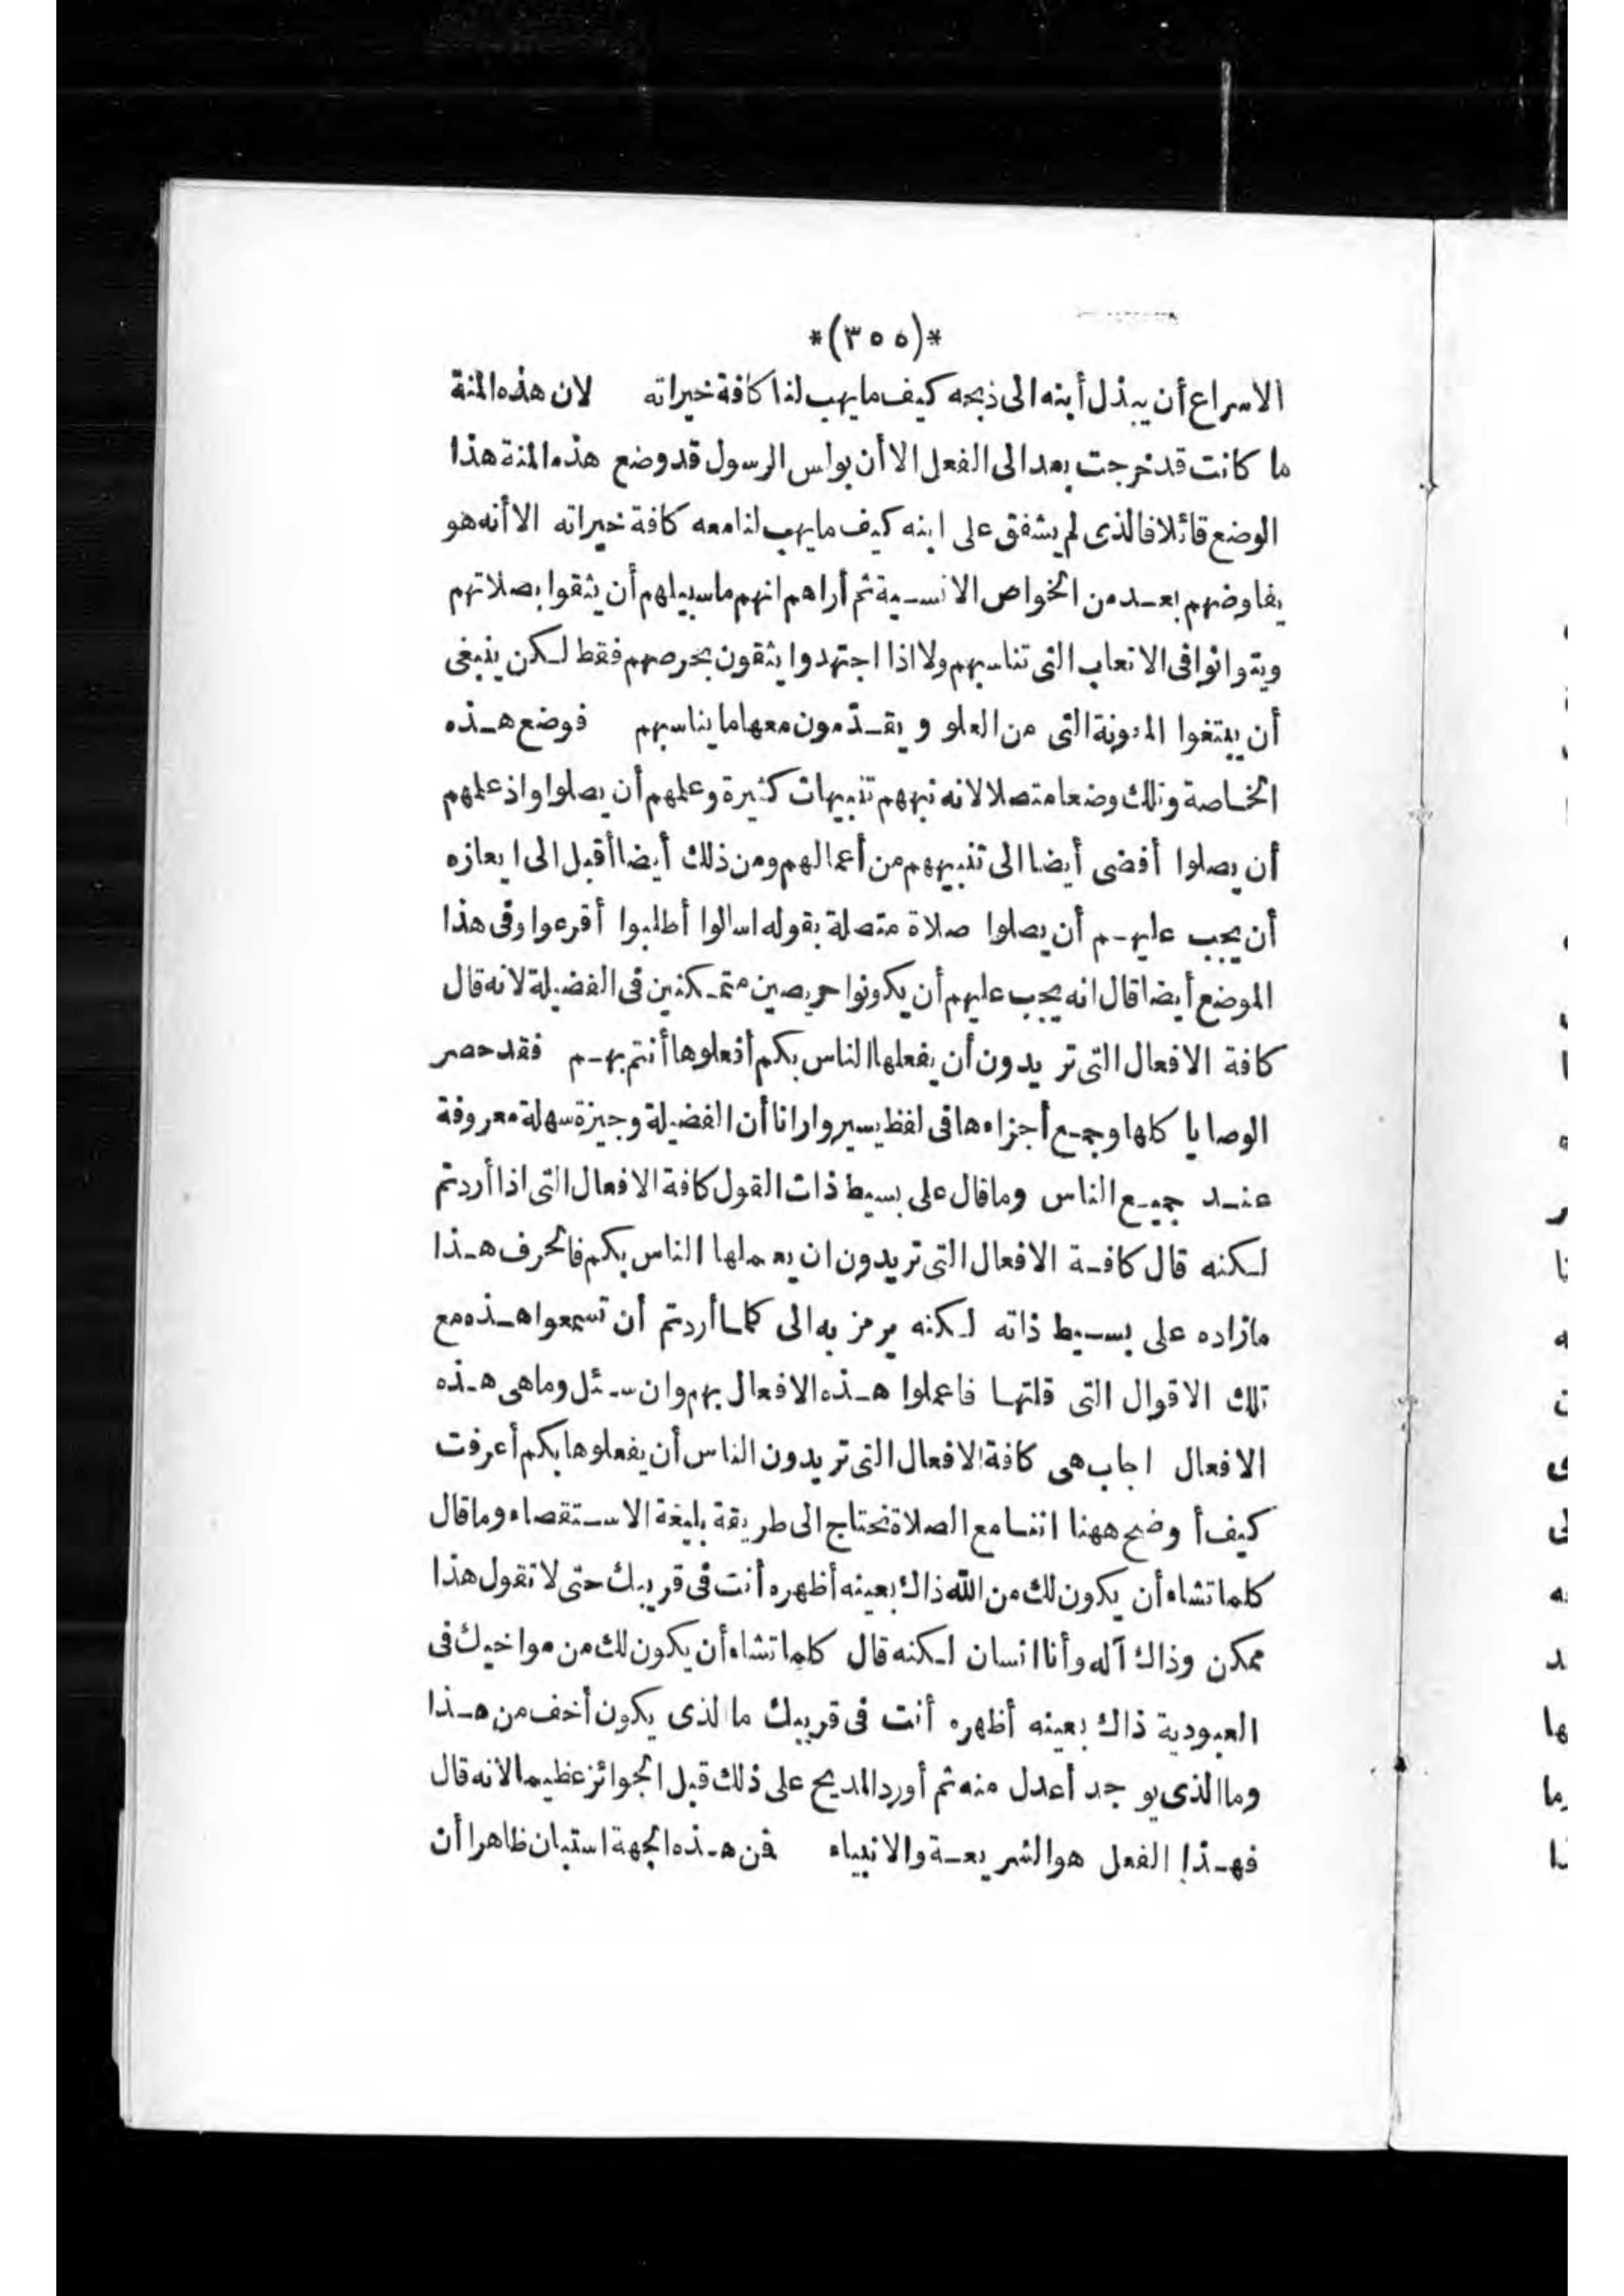 *(٣٥٥)*
الاسراع أن يبذل أبنه الى ذبحه كيف ما يهب لنا كافة خيراته لان هذه المنة
ما كانت قد خرجت بعد الى الفعل الا أن بولس الرسول قد وضع هذه المنة هذا
الوضع قائلا فالذى لم يشفق على ابنه كيف ما يهب لنا معه كافة خيراته الا أنه هو
يفاوضهم بعد من الخواص الانسية ثم أراهم انهم ما سبيلهم أن يثقوا بصلاتهم
ويتوانوا فى الاتعاب التى تناسبهم ولا اذا اجتهدوا يثقون بحرصهم فقط لكن ينبغى
أن يبتغوا المعونة التى من العلو و يقدّمون معها ما يناسبهم فوضع هذه
الخاصة وتلك وضعا متصلا لانه نبههم تنبيهات كثيرة وعلمهم أن يصلوا واذ علمهم
أن يصلوا أفضى أيضا الى تنبيههم من أعمالهم ومن ذلك أيضا أقبل الى ايعازه
أن يجب عليهم أن يصلوا صلاة متصلة بقوله اسالوا أطلبوا أقرعوا وفى هذا
الموضع أيضا قال انه يجب عليهم أن يكونوا حريصين متمكنين فى الفضيلة لانه قال
كافة الافعال التى تريدون أن يفعلها الناس بكم أفعلوها أنتم بهم فقد حصر
الوصايا كلها وجمع أجزاءها فى لفظ يسير وارانا أن الفضيلة وجيزة سهلة معروفة
عند جميع الناس وما قال على بسيط ذات القول كافة الافعال التى اذا أردتم
لكنه قال كافة الافعال التى تريدون ان يعملها الناس بكم فالحرف هذا
مازاده على بسيط ذاته لكنه يرمز به الى كلما أردتم أن تسمعوا هذه مع
تلك الاقوال التى قلتها فاعملوا هذه الافعال بهم وان سئل وما هى هذه
الافعال اجاب هى كافة الافعال التى تريدون الناس أن يفعلوها بكم أعرفت
كيف أوضح ههنا اننا مع الصلاة نحتاج الى طريقة بليغة الاستقصاء وما قال
كلما تشاء أن يكون لك من الله ذاك بعينه أظهره أنت فى قريبك حتى لا تقول هذا
ممكن وذاك آله وأنا انسان لكنه قال كلما تشاء أن يكون لك من مواخيك فى
العبودية ذاك بعينه أظهره أنت فى قريبك ما الذى يكون أخف من هذا
وما الذى يوجد أعدل منه ثم أورد المديح على ذلك قبل الجوائز عظيما لانه قال
فهذا الفعل هو الشريعة والانبياء فمن هذه الجهة استبان ظاهرا أن